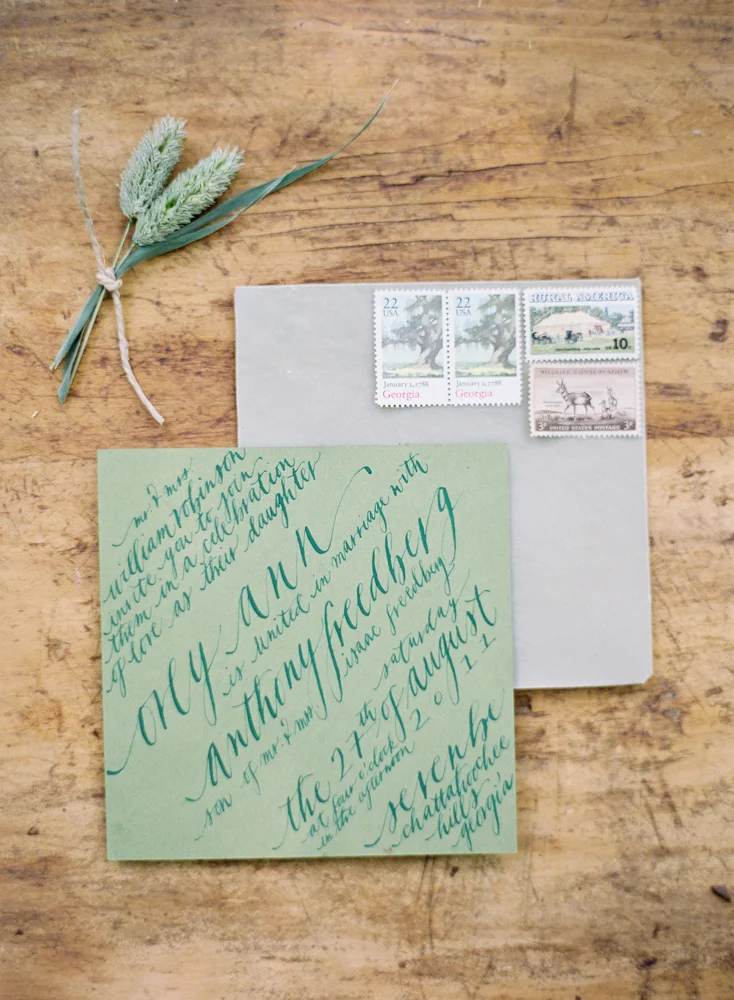 22
USA
January 2, 1788
Georgia
22
USA
January 2, 1788
Georgia
RURAL AMERICA
10
WILDLIFE CONSERVATION
3¢ UNITED STATES POSTAGE 3¢
mr. & mrs.
william robinson
invite you to join
them in a celebration
of love as their daughter
orly ann
is united in marriage with
anthony freedberg
son of mr. & mrs. isaac freedberg
saturday
the 27th of august
2011
at four o'clock
in the afternoon
serenbe
chattahoochee
hills
georgia